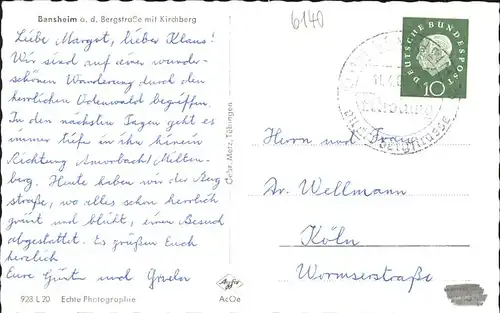 Bansheim a. d. Bergstraße mit Kirchberg
6140
Liebe Margot, lieber Klaus!
Wir sind auf einer wunder-
schönen Wanderung durch den
herrlichen Odenwald begriffen.
In den nächsten Tagen geht es
immer tiefer in ihn hinein
Richtung Amorbach Milten-
berg. Heute haben wir der Berg
straße, wo alles schon herrlich
grünt und blüht, einen Besuch
abgestattet. Es grüßen Euch
herzlich
Eure Günter und
923 L 20 Echte Photographie
Gebr. Metz, Tübingen
Agfa
AcOe
DEUTSCHE BUNDESPOST
10
Herrn und Frau
Dr. Wellmann
Köln
Wormserstraße